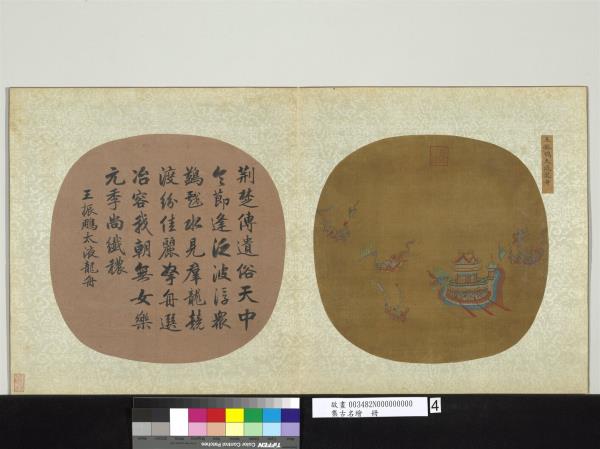 荆楚傳遺俗天中
令節逢泛波浮衆
鷁戲水見羣龍競
渡紛佳麗拏舟選
冶容我朝無女樂
元季尚纖穠
王振鵬太液龍舟
王振鵬太液龍舟
故畫 003482N000000000
集古名繪 冊
4
TIFFEN
Color Control Patches